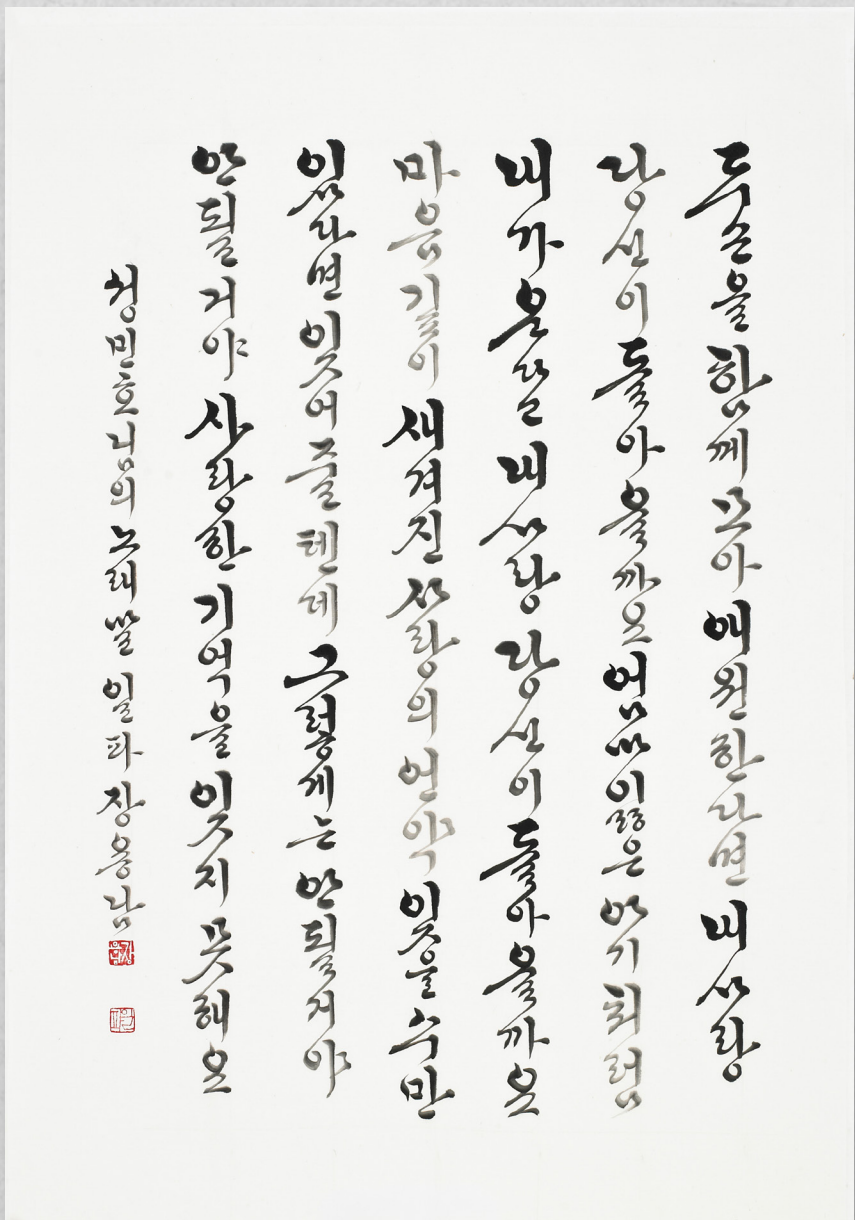 두손을 함께모아 애원한다면 내사랑
당신이 돌아올까요 엄마잃은 아기처럼
내가 내사랑 당신이 돌아올까요
마음깊이 새겨진 사랑의 언약 잊을수만
있다면 잊어줄텐데 그렇게는 안될거야
안될거야 사랑한 기억을 잊지못해요
정민호님의 노래말 일파 장용남